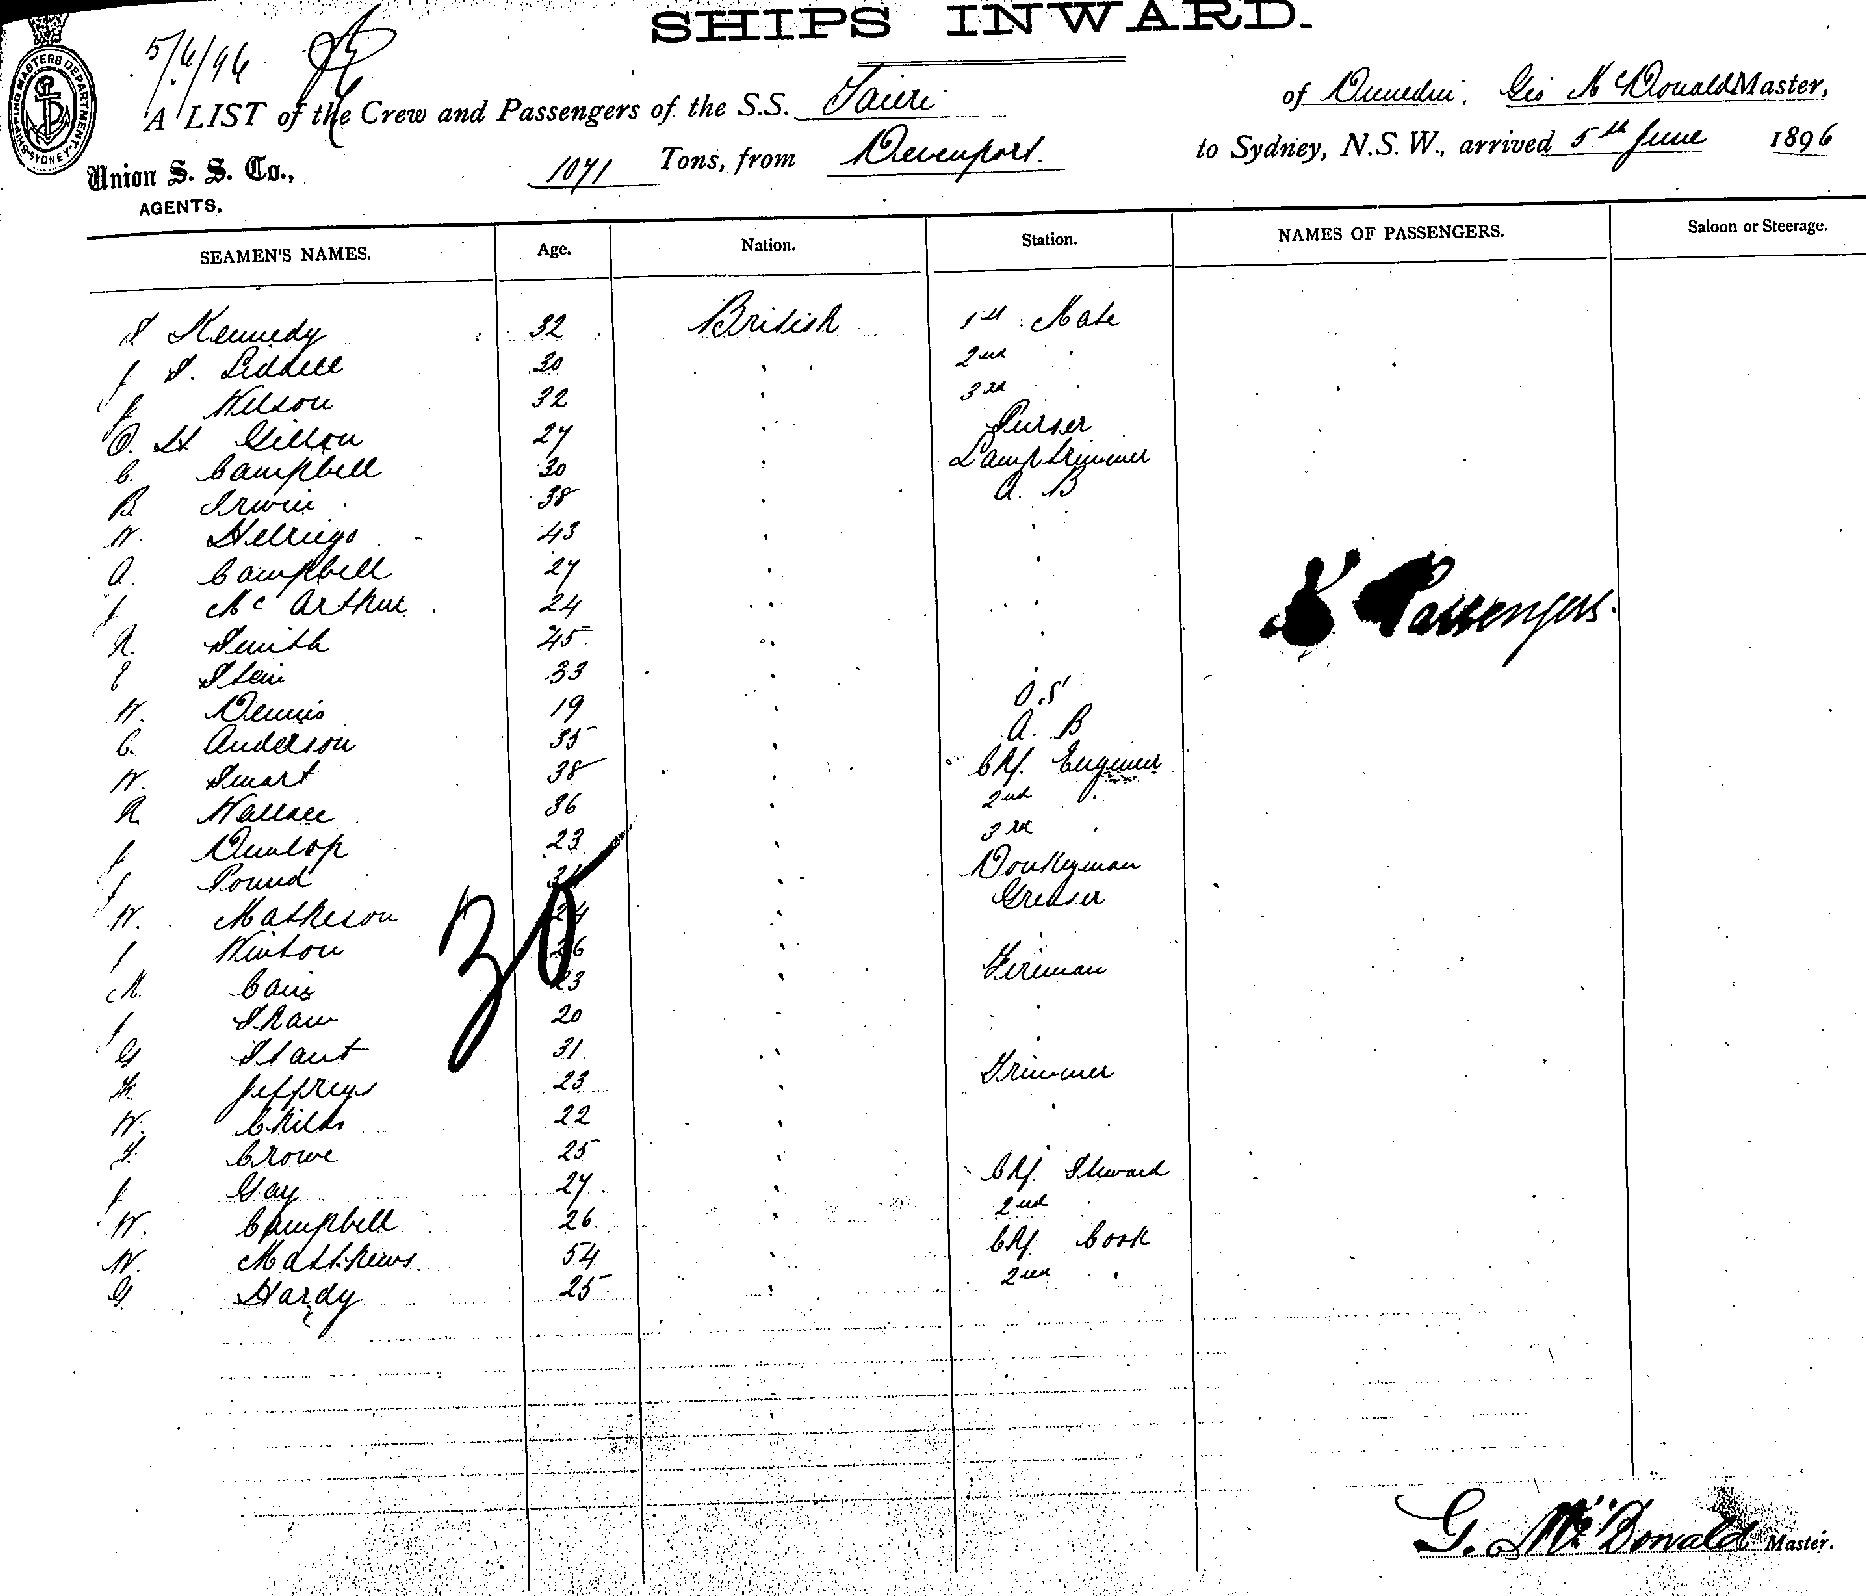 SHIPS INWARD.
5/6/96
SHIPPING MASTERS DEPARTMENT SYDNEY
A LIST of the Crew and Passengers of the S.S. Taieri of Dunedin, Geo McDonald Master,
Union S. S. Co., AGENTS,
1071 Tons, from Devonport. to Sydney, N.S.W., arrived 5th June 1896
SEAMEN'S NAMES. Age. Nation. Station. NAMES OF PASSENGERS. Saloon or Steerage.
Kennedy 32 British 1st Mate
J Liddell 30 2nd
J Wilson 32 3rd
Gillon 27 Purser
C. Campbell 30 Lamptrimmer
B. Irwin 38 A. B
W. 43
A. Campbell 27
J McArthur 24
R. Smith 45
E Stein 33
W. Dennis 19 O.S
C. Anderson 35 A. B
W. Smart 38 Chf. Engineer
R Wallace 36 2nd
J Dunlop 23 3rd
J Pound Donkeyman
W. Matheson 24 Greaser
J Winton 26
M. Cain 23 Fireman
J Shaw 20
G 31
H Jeffreys 23 Trimmer
W. Childs 22
Crowe 25
J Gay 27 Chf. Steward
W. Campbell 26 2nd
W. Matthews 54 Chf. Cook
G Hardy 25 2nd
30
Passengers.
G. McDonald Master.